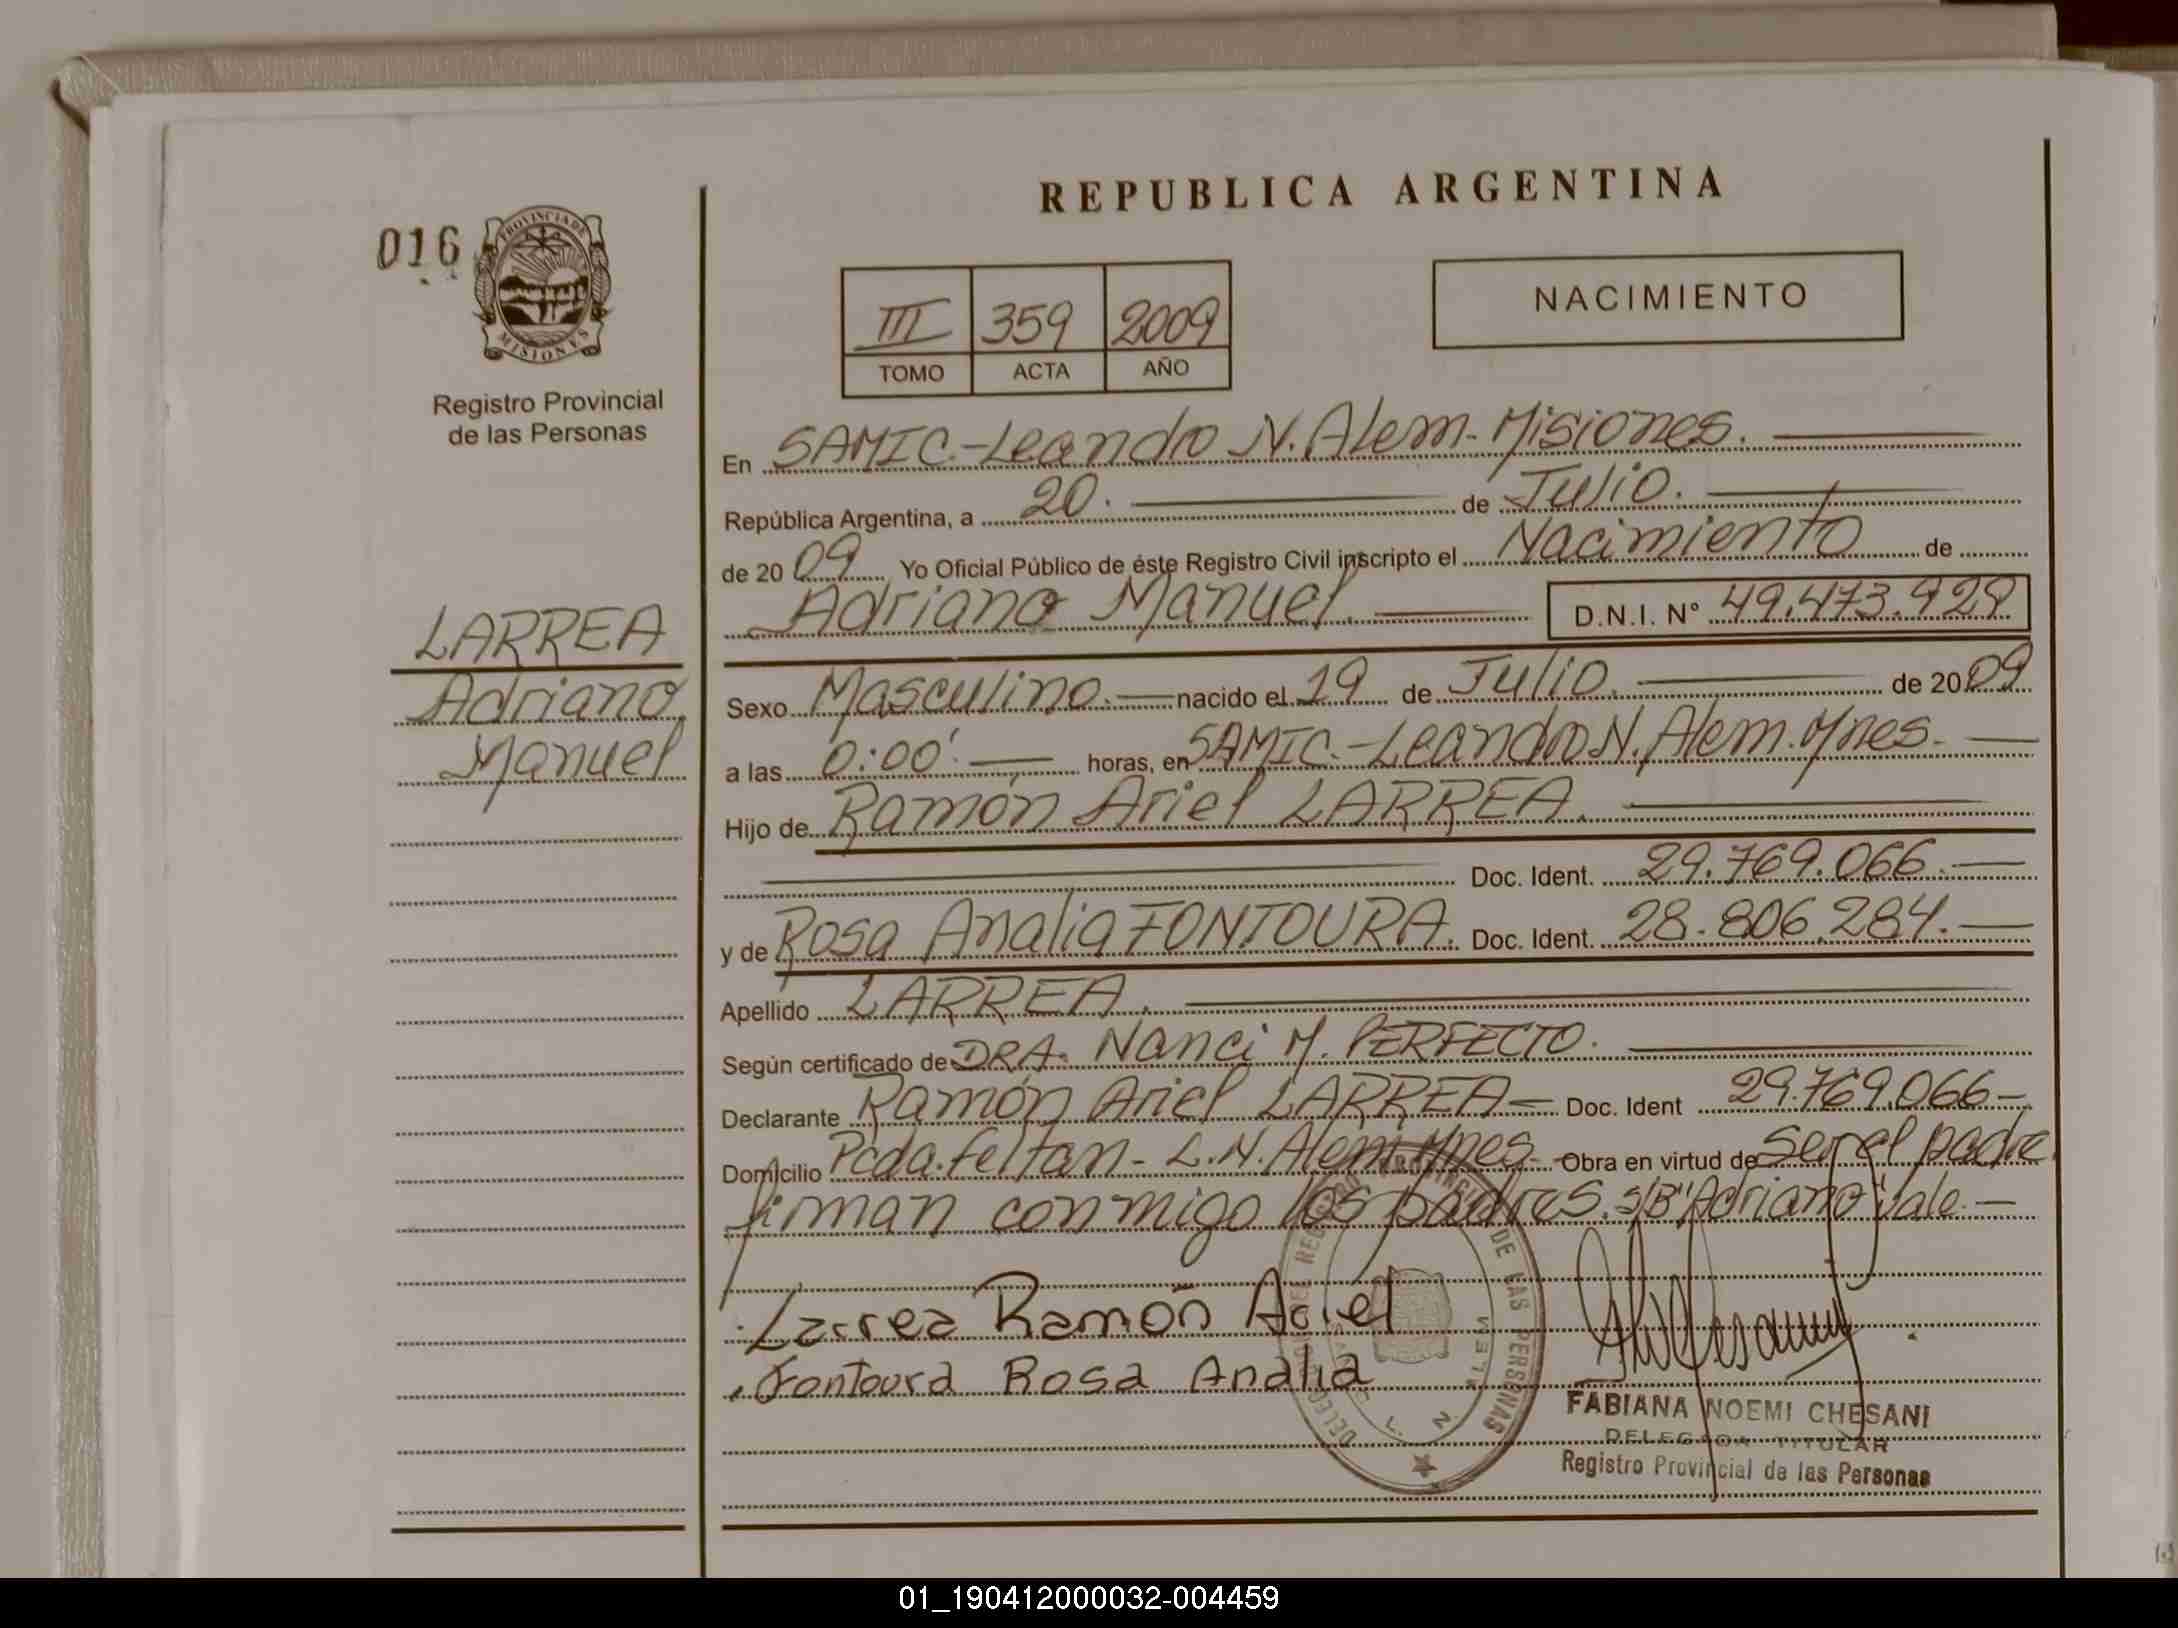 REPUBLICA ARGENTINA
016
PROVINCIA DE
MISIONES
Registro Provincial
de las Personas
III 359 2009
TOMO ACTA AÑO
NACIMIENTO
LARREA
Adriano
Manuel
En SAMIC.-Leandro N. Alem-Misiones.
República Argentina, a 20. de Julio.
de 2009 Yo Oficial Público de éste Registro Civil inscripto el Nacimiento de
Adriano Manuel. D.N.I. N° 49.473.929
Sexo Masculino. nacido el 19 de Julio. de 2009
a las 0:00'. horas, en SAMIC.-Leandro N. Alem. Mnes.
Hijo de Ramón Ariel LARREA.
Doc. Ident. 29.769.066.
y de Rosa Analia FONTOURA. Doc. Ident. 28.806.284.
Apellido LARREA.
Según certificado de DRA. Nanci M. PERFECTO.
Declarante Ramón Ariel LARREA Doc. Ident 29.769.066
Domicilio Pcda. Feltan - L.N. Alem Mnes Obra en virtud de Ser el padre.
firman conmigo los padres. S/B "Adriano" Vale.
Larrea Ramón Ariel
Fontoura Rosa Analia
DE LAS PERSONAS
L. N. ALEM
FABIANA NOEMI CHESANI
DELEGADA TITULAR
Registro Provincial de las Personas
01_190412000032-004459